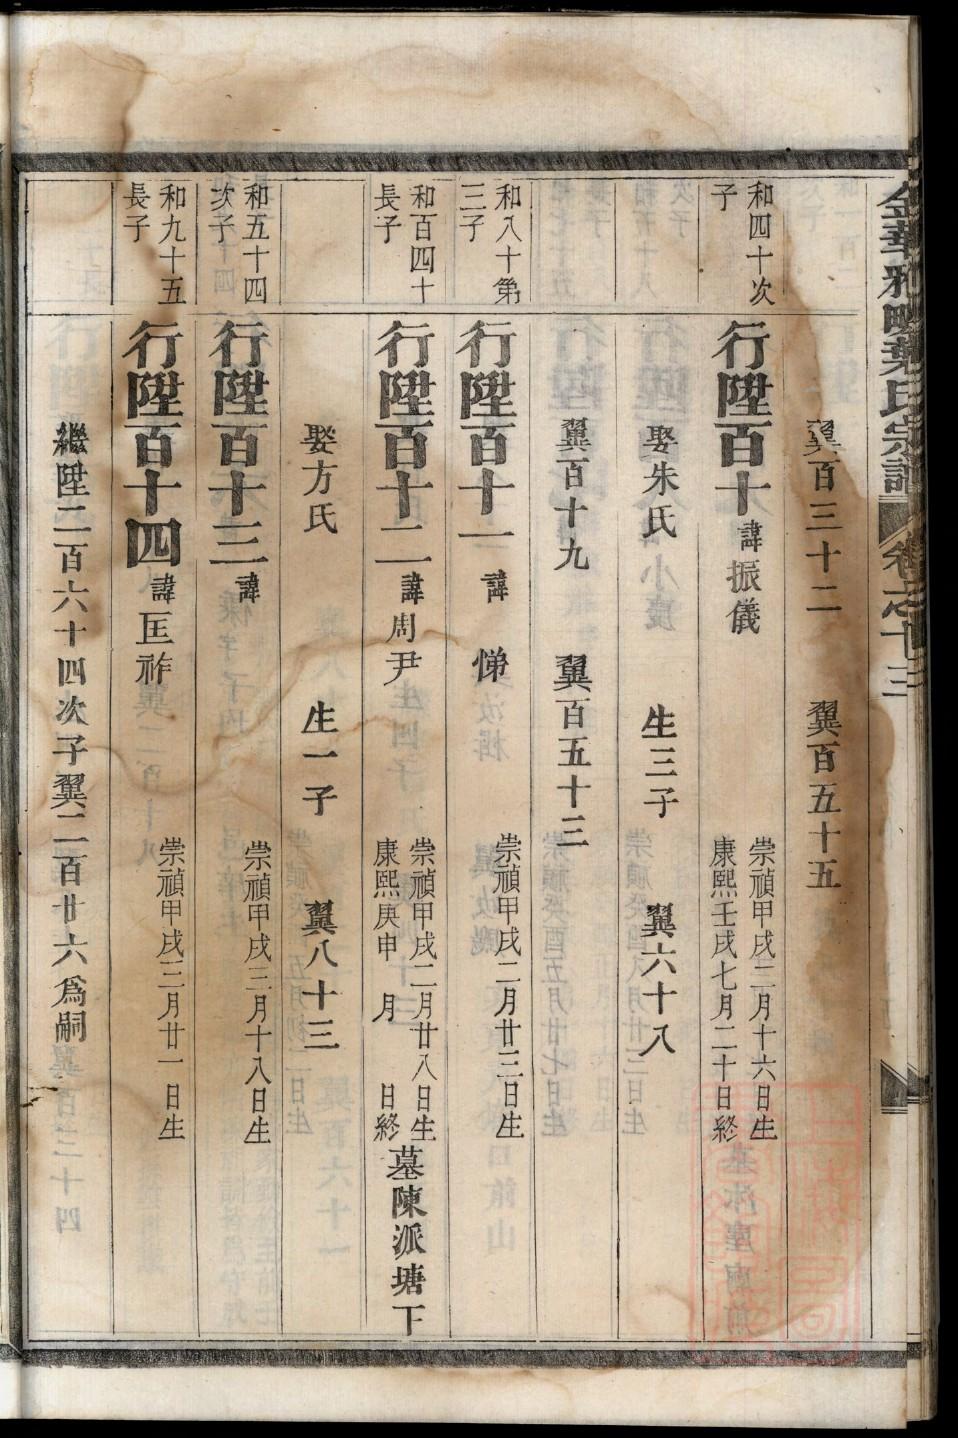 金華雅畈葉氏宗譜 卷之十三
翼百三十二 翼百五十五
和四十次子
行陞百十 諱振儀 崇禎甲戌二月十六日生 康熙壬戌七月二十日終
娶朱氏 生三子 翼六十八
翼百十九 翼百五十三
和八十第三子
行陞百十一 諱 悌 崇禎甲戌二月廿三日生
和百四十長子
行陞百十二 諱周尹 崇禎甲戌二月廿八日生 康熙庚申 月 日終 墓陳派塘下
娶方氏 生一子 翼八十三
和五十四次子
行陞百十三 諱 崇禎甲戌三月十八日生
和九十五長子
行陞百十四 諱匡祚 崇禎甲戌三月廿一日生
繼陞二百六十四次子翼二百廿六爲嗣